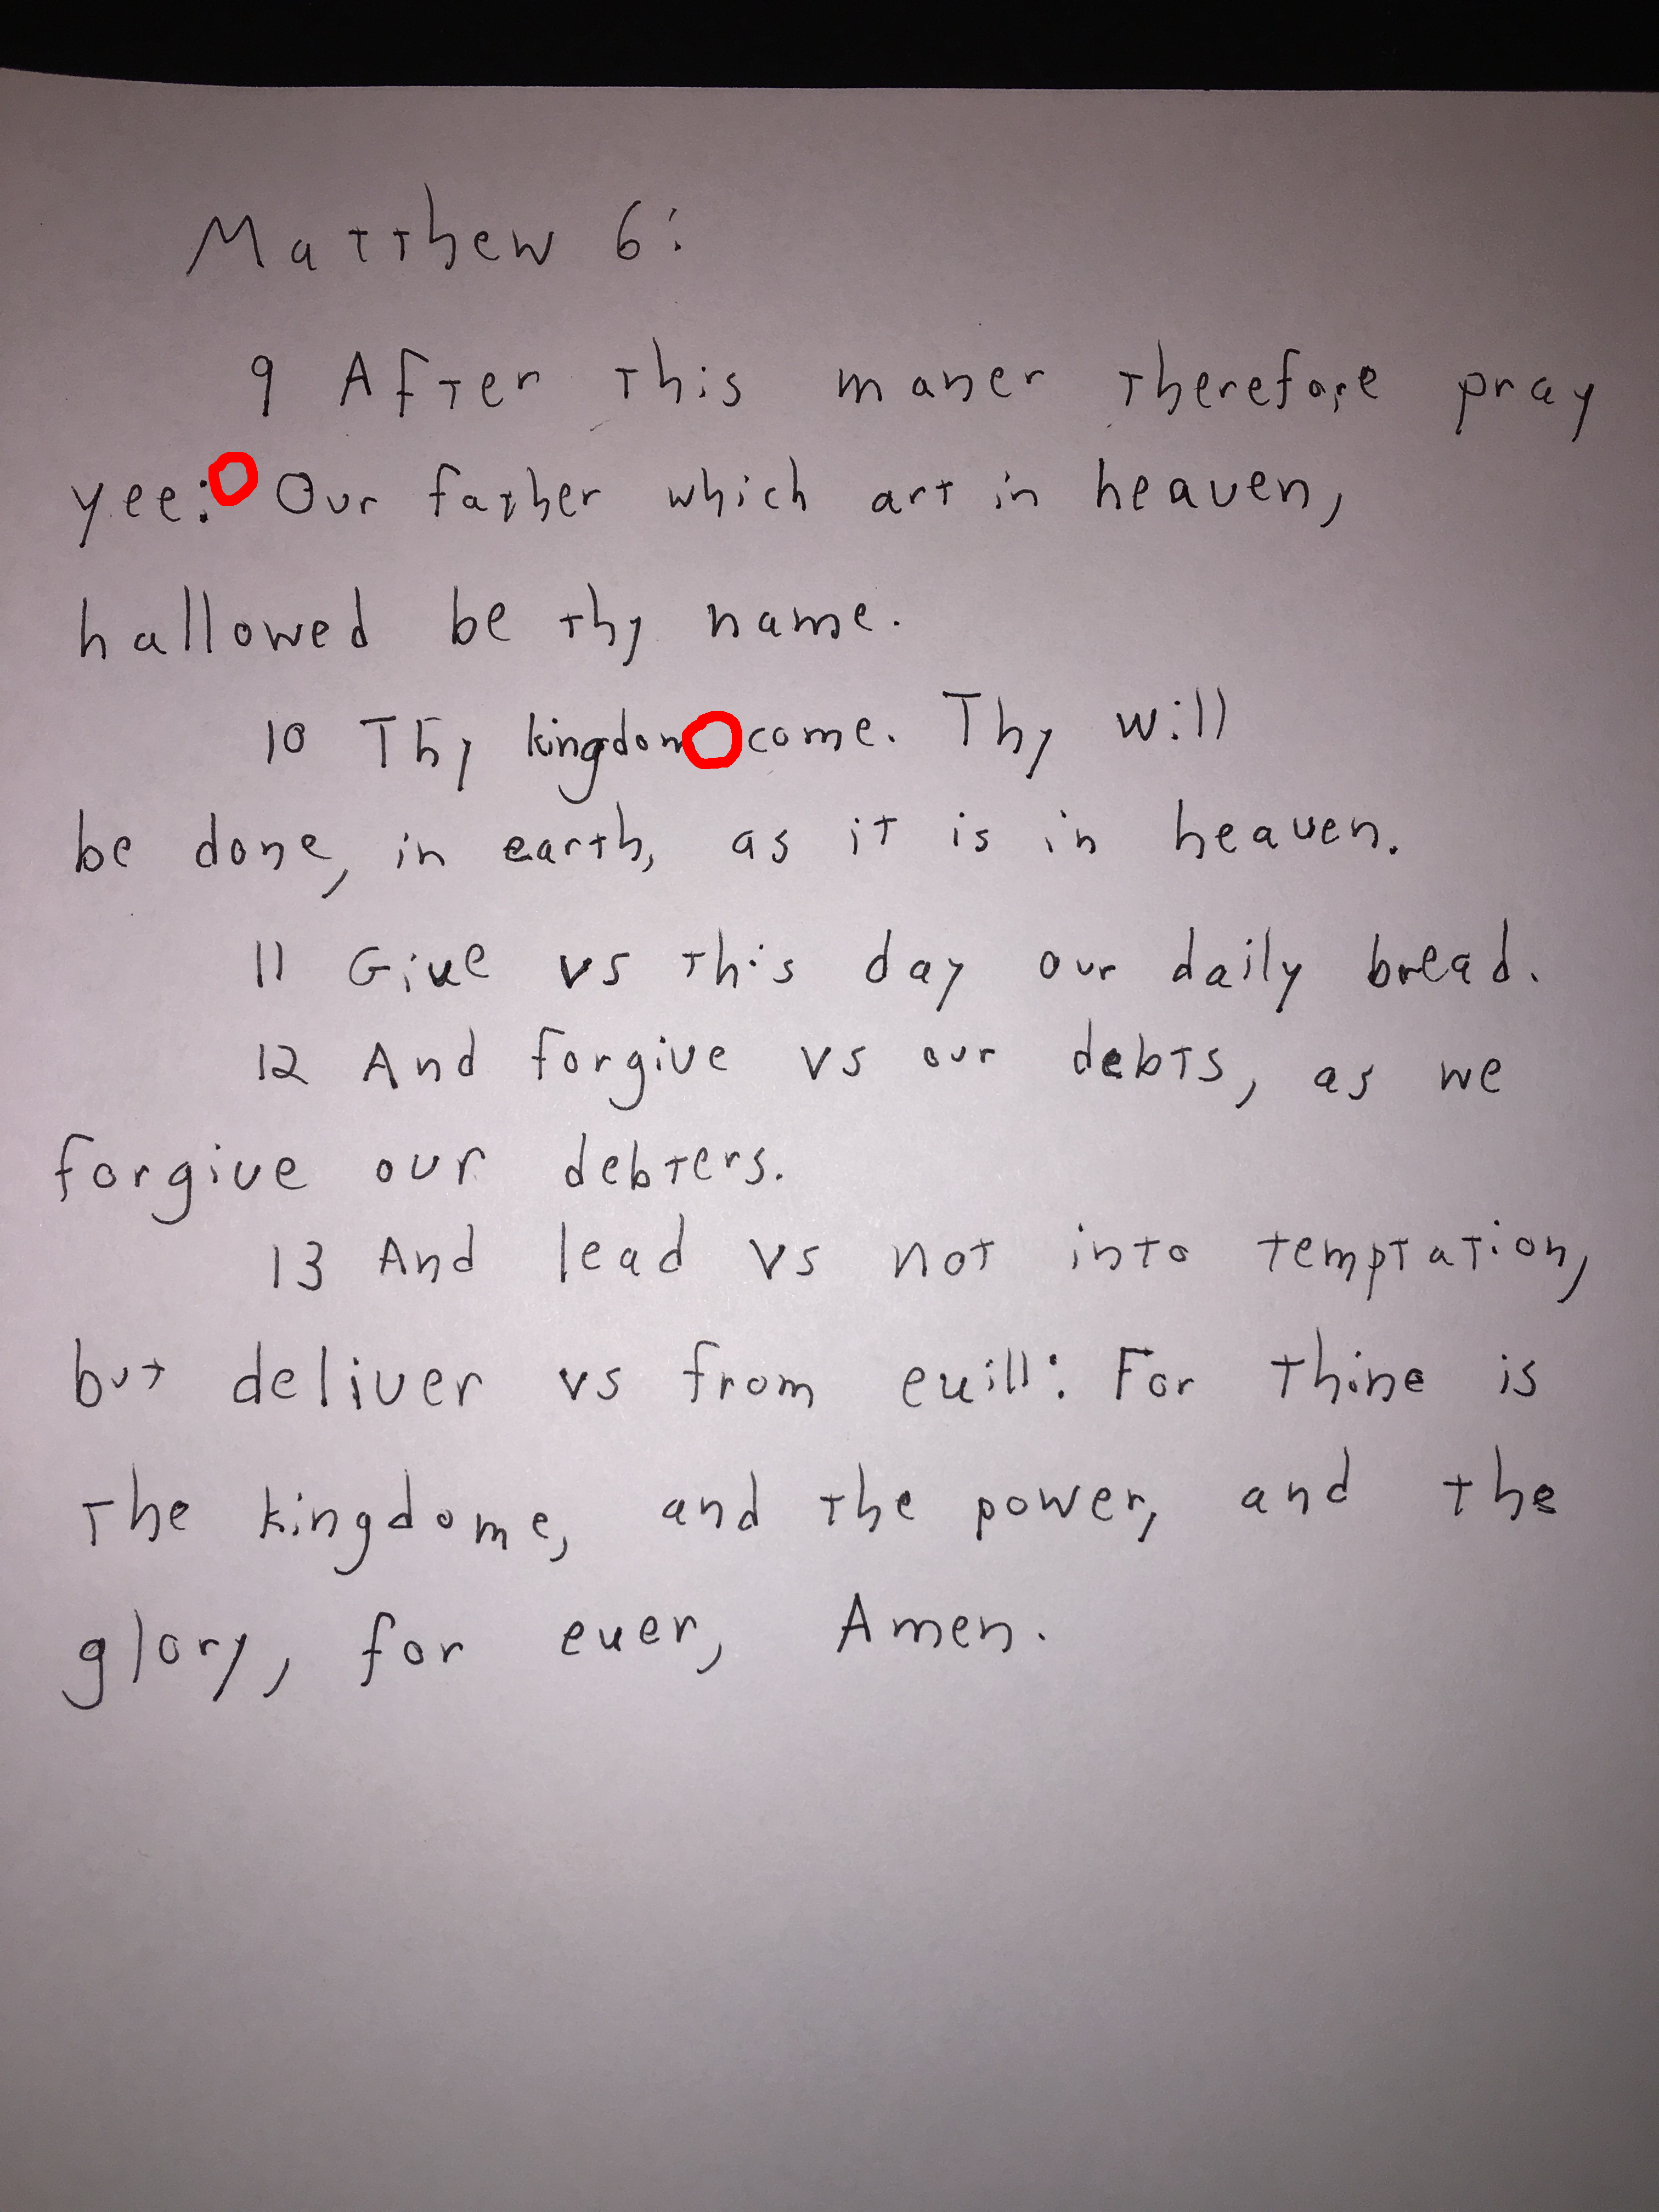 Matthew 6:
9 After this maner therefore pray
yee: Our father which art in heauen,
hallowed be thy name.
10 Thy kingdom come. Thy will
be done, in earth, as it is in heauen.
11 Giue vs this day our daily bread.
12 And forgiue vs our debts, as we
forgiue our debters.
13 And lead vs not into temptation,
but deliuer vs from euill: For thine is
the kingdome, and the power, and the
glory, for euer, Amen.